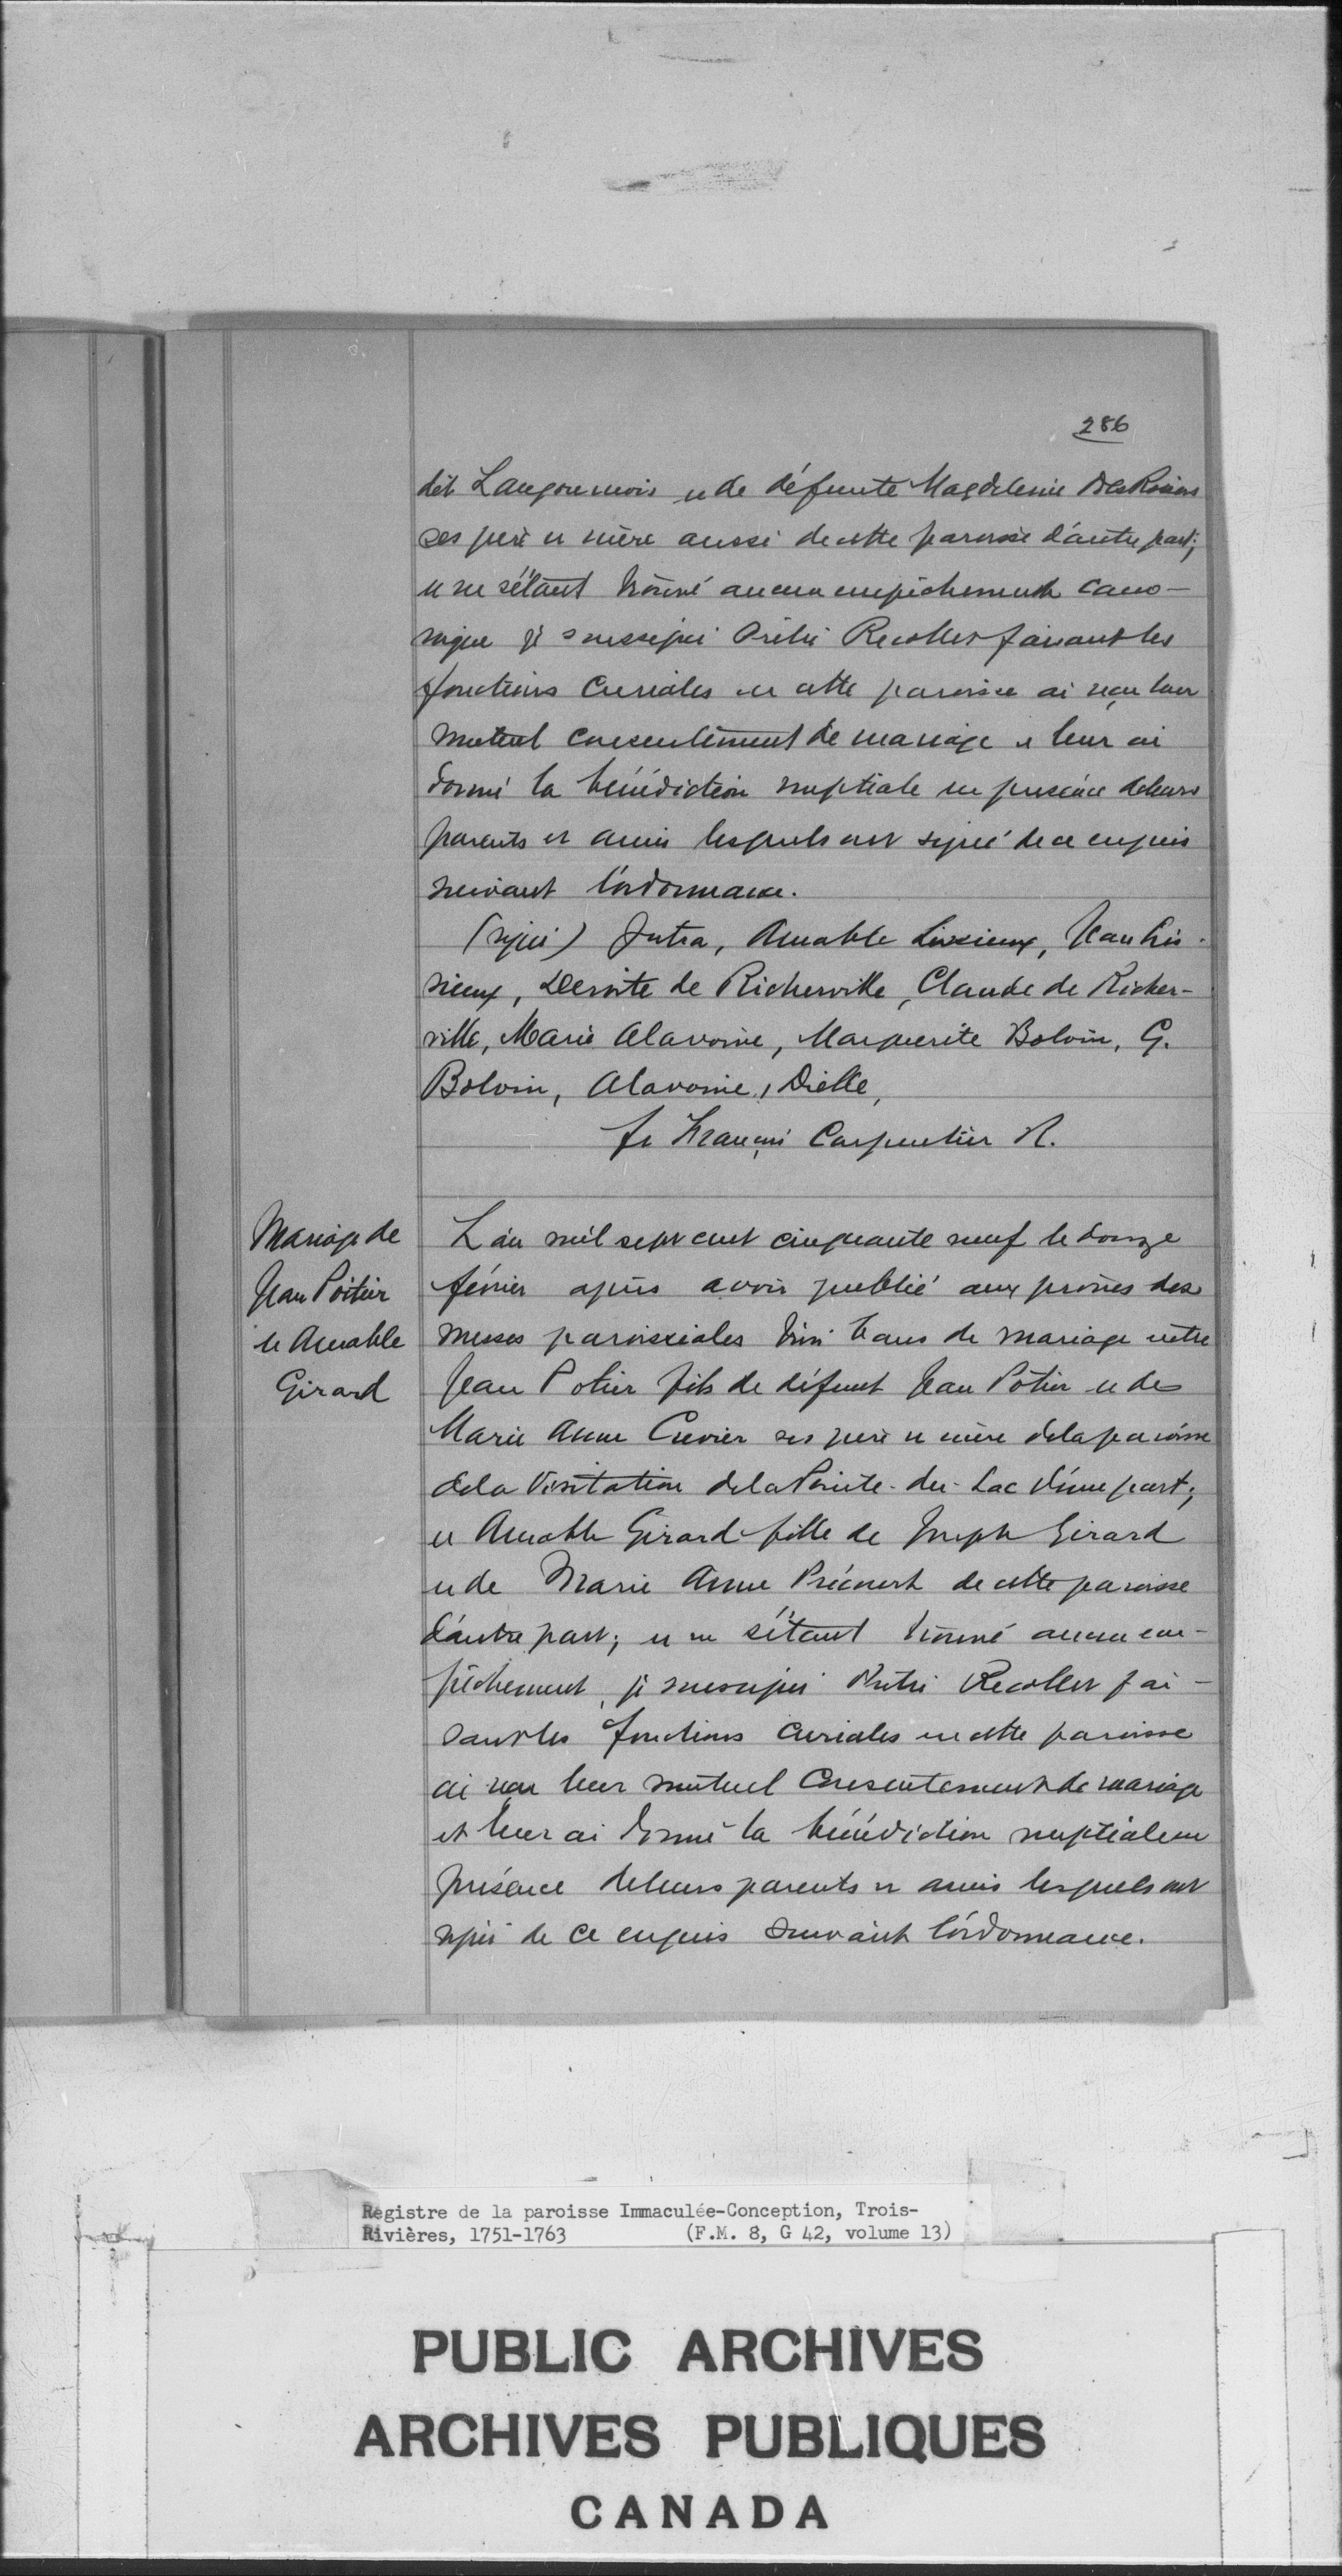 286
dit Langoumois et de défunte Magdeleine DesRosiers
ses père et mère aussi de cette paroisse d'autre part;
et ne s'étant trouvé aucun empêchement cano-
nique je soussigné Prêtre Recollet faisant les
fonctions Curiales en cette paroisse ai reçu leur
mutuel consentement de mariage et leur ai
donné la bénédiction nuptiale en présence de leurs
parents et amis lesquels ont signé de ce enquis
suivant l'ordonnance.
(signé) Jutra, Amable Lissieux, Jean Lis-
sieux, Deniste de Richerville, Claude de Richer-
ville, Marie Alavoine, Marguerite Bolvin, G.
Bolvin, Alavoine, Dielle,
fr François Carpentier R.
Mariage de
Jean Poitier
et Amable
Girard
L'an mil sept cent cinquante neuf le douze
février après avoir publié aux prônes des
messes paroissiales trois bans de mariage entre
Jean Potier fils de défunt Jean Potier et de
Marie Anne Cuvier ses père et mère de la paroisse
de la Visitation de la Pointe-du-Lac d'une part;
et Amable Girard fille de Joseph Girard
et de Marie Anne Précourt de cette paroisse
d'autre part; et ne s'étant trouvé aucun em-
pêchement, je soussigné Prêtre Recollet fai-
sant les fonctions Curiales en cette paroisse
ai reçu leur mutuel Consentement de mariage
et leur ai donné la bénédiction nuptiale en
présence de leurs parents et amis lesquels ont
signé de ce enquis suivant l'ordonnance.
Registre de la paroisse Immaculée-Conception, Trois-
Rivières, 1751-1763 (F.M. 8, G 42, volume 13)
PUBLIC ARCHIVES
ARCHIVES PUBLIQUES
CANADA